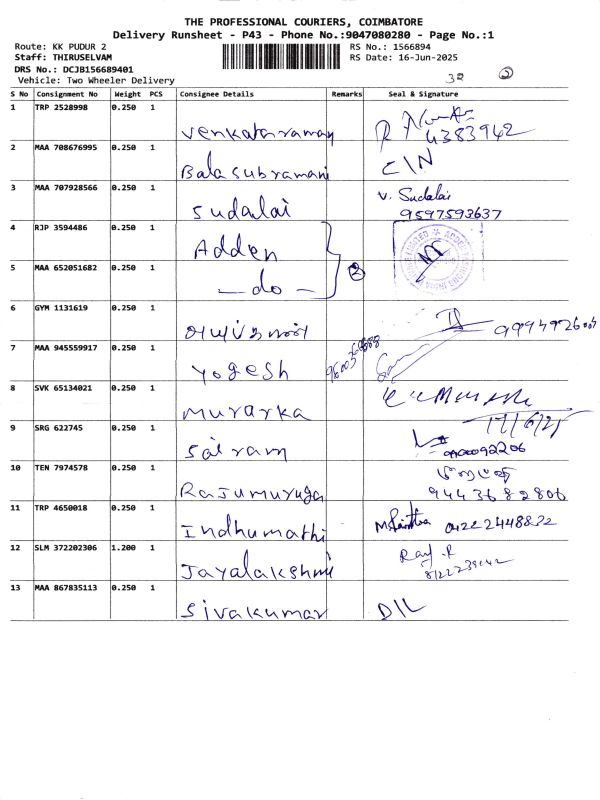 THE PROFESSIONAL COURIERS, COIMBATORE
Delivery Runsheet - P43 - Phone No.:9047080280 - Page No.:1
Route: KK PUDUR 2 RS No.: 1566894
Staff: THIRUSELVAM RS Date: 16-Jun-2025
DRS No.: DCJB156689401
Vehicle: Two Wheeler Delivery 32 2
S No Consignment No Weight PCS Consignee Details Remarks Seal & Signature
1 TRP 2528998 0.250 1 Venkataraman 4383942
2 MAA 708676995 0.250 1 Balasubramani C/N
3 MAA 707928566 0.250 1 Sudalai V. Sudalai
9597593637
4 RJP 3594486 0.250 1 Adden
5 MAA 652051682 0.250 1 —do— 2
6 GYM 1131619 0.250 1
7 MAA 945559917 0.250 1 Yogesh
8 SVK 65134021 0.250 1 Murarka
17/6/25
9 SRG 622745 0.250 1 Sairam
10 TEN 7974578 0.250 1 Rajumuruga
9443682806
11 TRP 4650018 0.250 1 Indhumathi 04222448822
12 SLM 372202306 1.200 1 Jayalakshmi
13 MAA 867835113 0.250 1 Sivakumar D/L